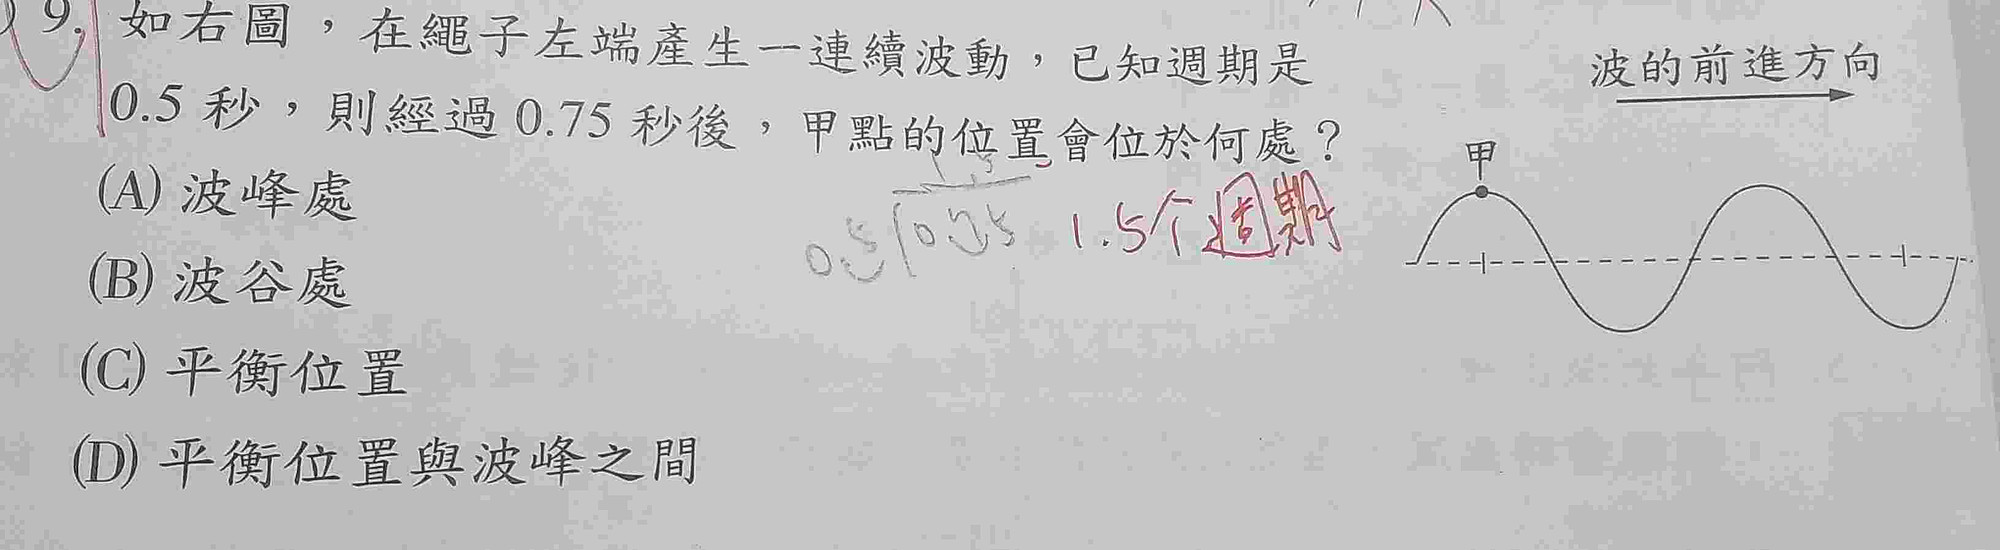 9. 如右圖，在繩子左端產生一連續波動，已知週期是
0.5 秒，則經過 0.75 秒後，甲點的位置會位於何處？
(A) 波峰處
(B) 波谷處
(C) 平衡位置
(D) 平衡位置與波峰之間
1.5
0.5 0.75
1.5个週期
波的前進方向
甲